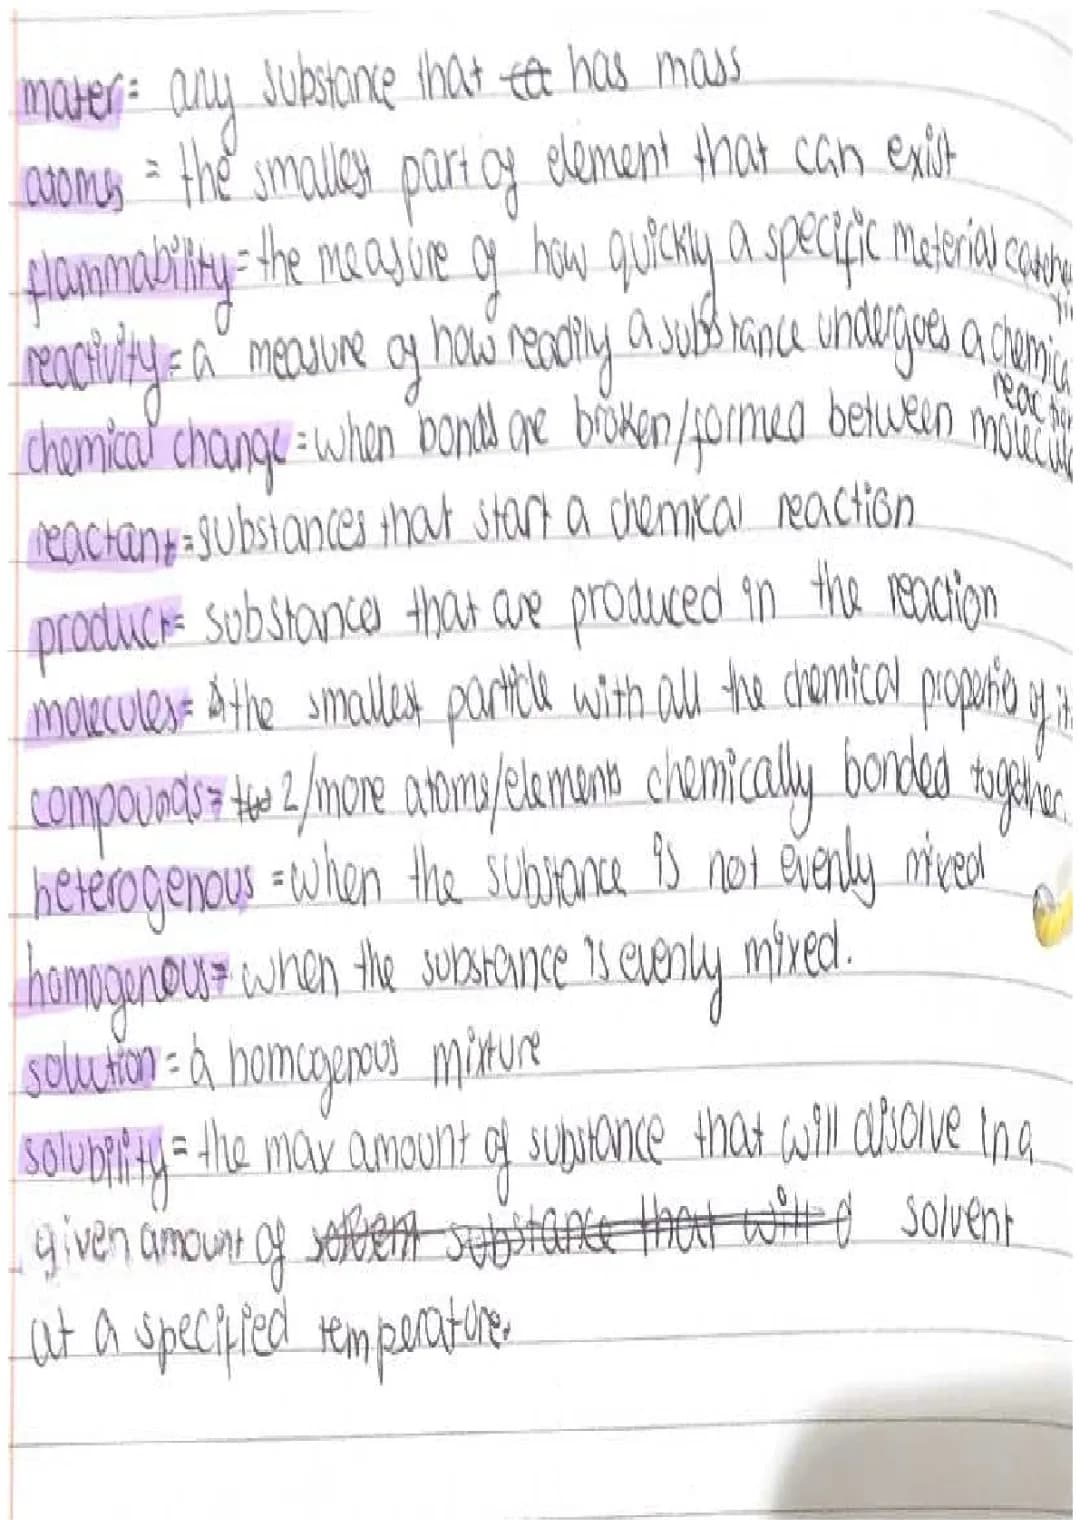 mater= any substance that has mass
atoms = the smallest part of element that can exist
flammability= the measure of how quickly a specific meterial catche
fir
reactivity= a measure of how readily a substance undergoes a chemica
reaction
chemical change=when bonds are broken/formed between molecule
reactant=substances that start a chemical reaction
product= substances that are produced in the reaction
molecules= the smallest particle with all the chemical properties of it
compounds= 2/more atoms/elements chemically bonded together.
heterogenous =when the substance is not evenly mixed
homogenous= when the substance is evenly mixed.
solution= a homogenous mixture
solubility= the max amount of substance that will disolve in a
given amount of solvent substance that will d solvent
at a specified temperature.